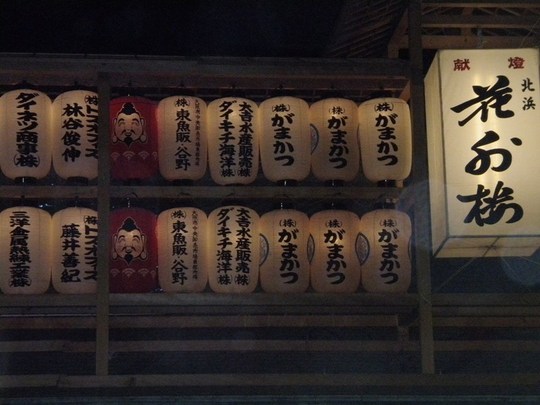 献燈
北浜
花外楼
ダイホツ商事㈱
㈱トスオライズ
林谷俊伸
㈱東魚阪
谷野
大吉水産販売㈱
ダイキチ海洋㈱
㈱がまかつ
㈱がまかつ
㈱がまかつ
㈱トスオライズ
藤井善紀
㈱東魚阪
谷野
大吉水産販売㈱
ダイキチ海洋㈱
㈱がまかつ
㈱がまかつ
㈱がまかつ